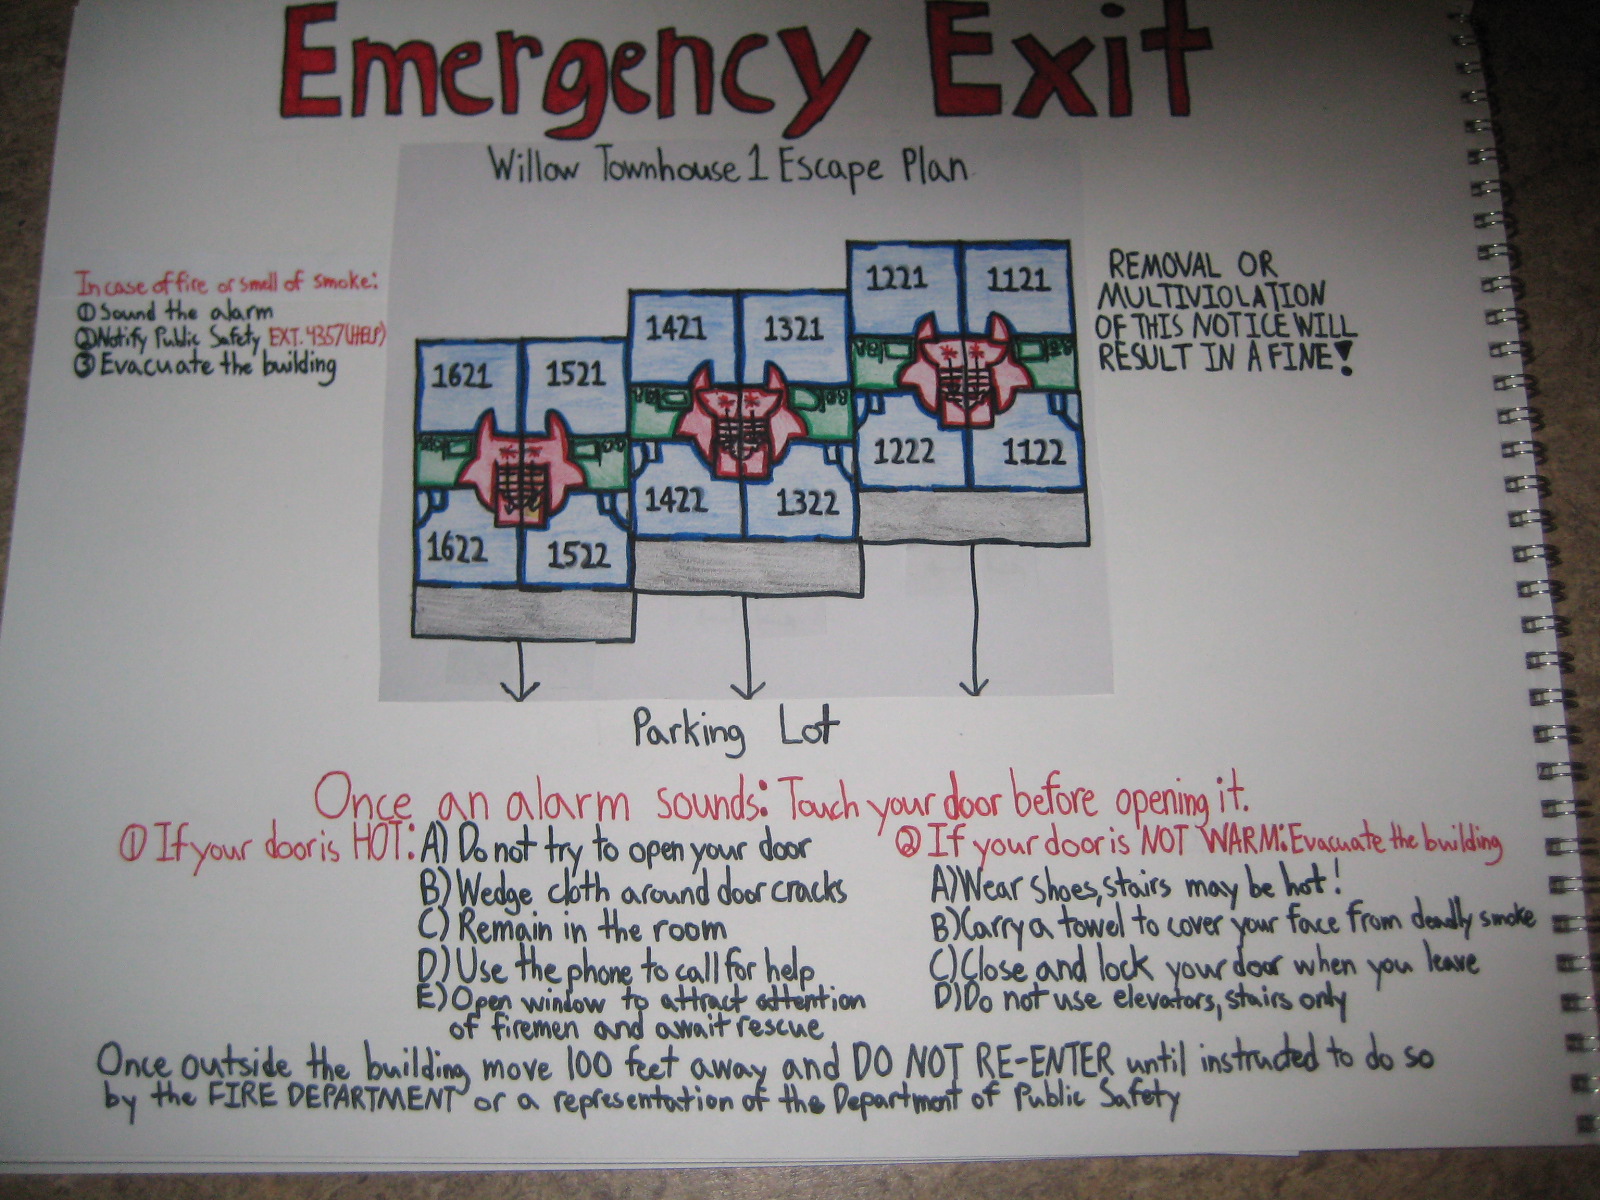 Emergency Exit
Willow Townhouse 1 Escape Plan
In case of fire or smell of smoke:
① Sound the alarm
② Notify Public Safety EXT. 4357 (HELP)
③ Evacuate the building
REMOVAL OR
MULTIVIOLATION
OF THIS NOTICE WILL
RESULT IN A FINE!
1221 1121
1421 1321
1621 1521
1222 1122
1422 1322
1622 1522
Parking Lot
Once an alarm sounds: Touch your door before opening it.
① If your door is HOT: A) Do not try to open your door
B) Wedge cloth around door cracks
C) Remain in the room
D) Use the phone to call for help
E) Open window to attract attention
of firemen and await rescue
② If your door is NOT WARM: Evacuate the building
A) Wear shoes, stairs may be hot!
B) Carry a towel to cover your face from deadly smoke
C) Close and lock your door when you leave
D) Do not use elevators, stairs only
Once outside the building move 100 feet away and DO NOT RE-ENTER until instructed to do so
by the FIRE DEPARTMENT or a representation of the Department of Public Safety